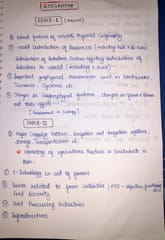 GEOGRAPHY
PAPER-I (Mains)
① Salient features of World's Physical Geography
② World Distribution of Resources (including India & S. Asia)
Distribution of Industries, Factors affecting Distribution of
Industries in world (including India)
③ Important geophysical Phenomenon such as Earthquakes
Tsunamis, Cyclones
④ Changes in Geographical features, changes in flora & fauna
and their effects
(Environment & Ecology)
PAPER-III
① Major Cropping Pattern, Irrigation and irrigation systems,
storage, Transportation etc.
Marketing of agriculture Products & Constraints in
them.
② E-Technology in aid of farmers
③ Issues related to farm subsidies; PDS -
Food Security
④ Food Processing Industries
⑤ Infrastructure